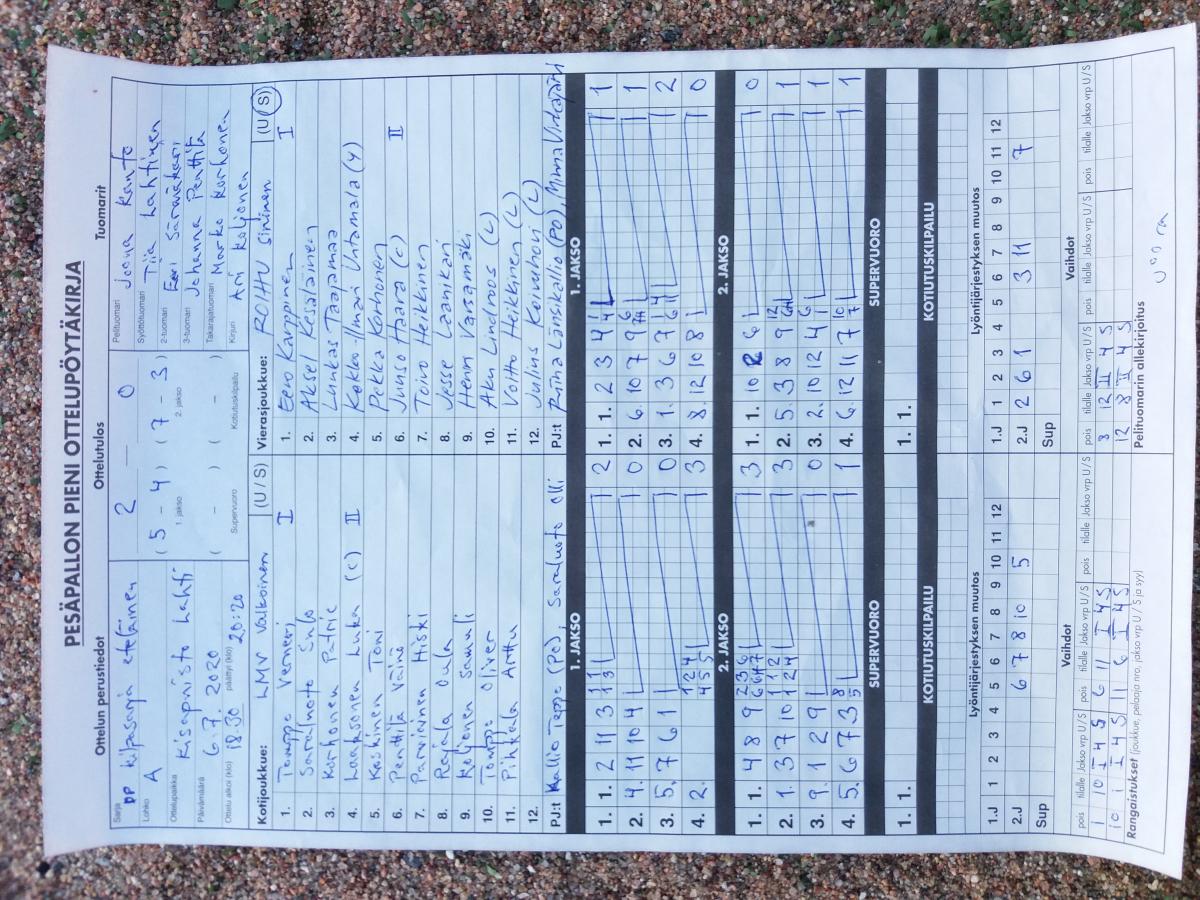 PESÄPALLON PIENI OTTELUPÖYTÄKIRJA
Ottelun perustiedot
Sarja DP kilpasarja eteläinen
Lohko A
Ottelupaikka Kisapuisto Lahti
Päivämäärä 6.7. 2020
Ottelu alkoi (klo) 18.30 päättyi (klo) 20:20
Ottelutulos
2 — 0
( 5 - 4 ) ( 7 - 3 )
1. jakso 2. jakso
( - ) ( - )
Supervuoro Kotiutuskilpailu
Tuomarit
Pelituomari Joona Kanto
Syöttötuomari Tiia Lahtinen
2-tuomari Eeri Särmäkari
3-tuomari Johanna Penttilä
Takarajatuomari Marko Korhonen
Kirjuri Ari Koljonen
Kotijoukkue: LMV Valkoinen (U / S)
1. Tomppo Verneri I
2. Saraluoto Sulo
3. Korhonen Patric
4. Laaksonen Luka (c) II
5. Koskinen Toni
6. Penttilä Väinö
7. Parviainen Hiski
8. Rajala Oula
9. Koljonen Samuli
10. Tomppo Oliver
11. Pihkala Arttu
12.
PJ:t Kallio Teppo (PO), Saraluoto Olli
Vierasjoukkue: ROIHU Sininen (U / S)
1. Eero Karppinen I
2. Aksel Kesäläinen
3. Luukas Taajamaa
4. Kokko-Ilmari Uhtamala (4)
5. Pekka Karhonen
6. Juuso Haara (c) II
7. Toivo Heikkinen
8. Jesse Laanikari
9. Henri Varsamäki
10. Aku Lindroos (L)
11. Voitto Heikkinen (L)
12. Julius Koivuhovi (L)
PJ:t Länskallio (PO),
1. JAKSO
1. 1. 2 11 3 1 1 1 3 1 2
2. 4. 11 10 4 0
3. 5. 7 6 1 0
4. 2. 1 2 4 4 5 5 3
2. JAKSO
1. 1. 4 8 9 2 3 6 6 6 4 7 3
2. 1. 3 7 10 1 1 2 1 2 4 3
3. 9. 1 2 9 0
4. 5. 6 7 3 8 5 1
SUPERVUORO
1. 1.
KOTIUTUSKILPAILU
1. JAKSO
1. 1. 2 3 4 1
2. 6. 10 7 9 1
3. 1. 3 6 7 2
4. 8. 12 10 8 0
2. JAKSO
1. 1. 10 2 6 0
2. 5. 3 8 9 1
3. 2. 10 12 4 1
4. 6. 12 11 7 1
SUPERVUORO
1. 1.
KOTIUTUSKILPAILU
Lyöntijärjestyksen muutos
1.J 1 2 3 4 5 6 7 8 9 10 11 12
2.J 6 7 8 10 5
Sup
Vaihdot
pois tilalle Jakso vrp U / S pois tilalle Jakso vrp U / S pois tilalle Jakso vrp U / S
1 10 I 4 S 6 11 I 4 S
10 1 I 4 S 11 6 I 4 S
Rangaistukset (joukkue, pelaaja nro, jakso vrp U / S ja syy)
Lyöntijärjestyksen muutos
1.J 1 2 3 4 5 6 7 8 9 10 11 12
2.J 2 6 1 3 11 7
Sup
Vaihdot
pois tilalle Jakso vrp U / S pois tilalle Jakso vrp U / S pois tilalle Jakso vrp U / S
8 12 II 4 S
12 8 II 4 S
Pelituomarin allekirjoitus